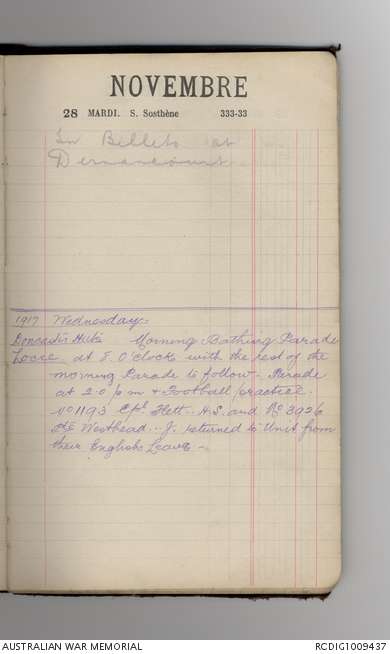 NOVEMBRE
28 MARDI. S. Sosthène 333-33
In Billets at
Dernancourt
1917 Wednesday.
Doncaster Huts Morning Bathing Parade
Locre at 8. O'clock with the rest of the
morning Parade to follow - Parade
at 2.0 p m & Football practice.
No 1193 Cpl Flett.. H.S. and No 3926
Pte Westhead.. J. returned to Unit from
their English Leave -
AUSTRALIAN WAR MEMORIAL
RCDIG1009437